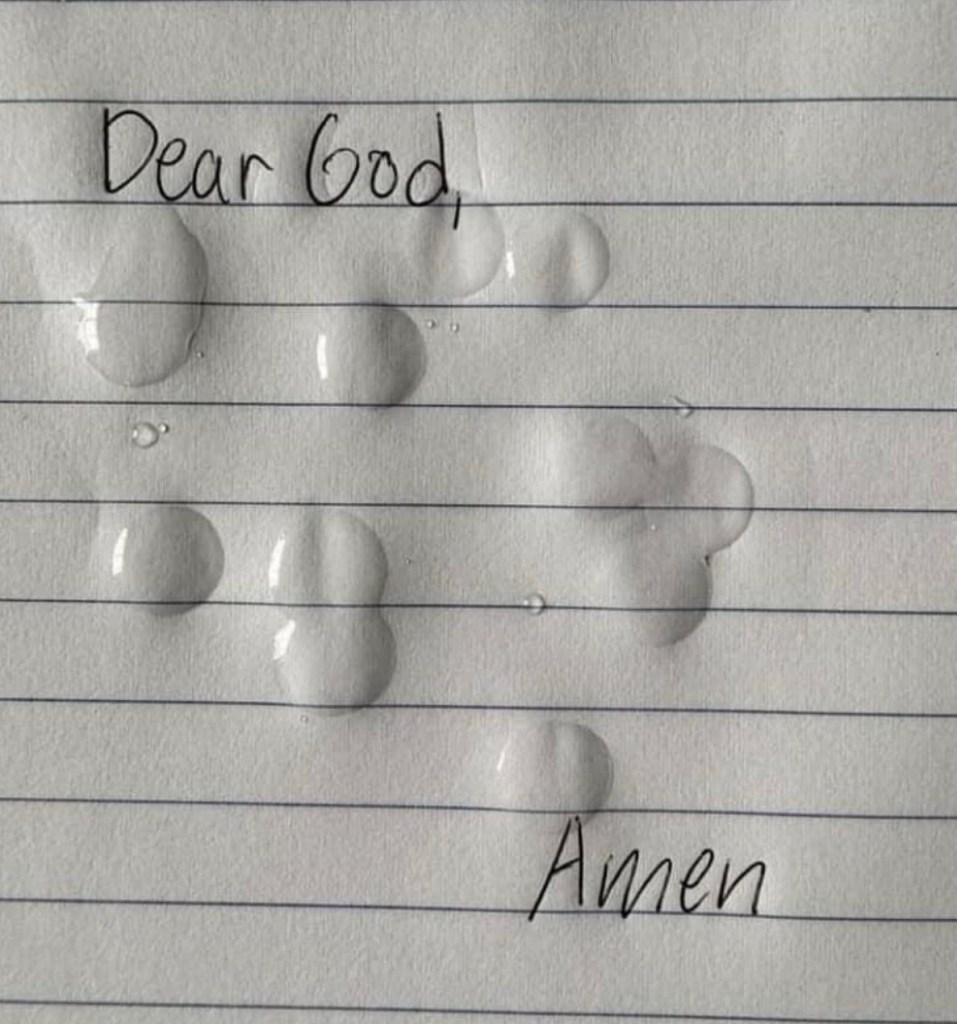 Dear God,
Amen